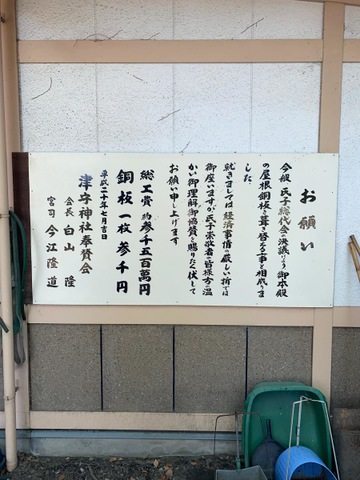 お願い
今般 氏子総代会の決議により 御本殿
の屋根銅板を葺き替える事と相成りま
した。
就きましては経済事情の厳しい折では
御座いますが氏子崇敬者の皆様方の温
かい御理解御協賛を賜りたく伏して
お願い申し上げます
総工費 約参千五百萬円
銅板 一枚参千円
平成二十年七月吉日
津守神社奉賛会
会長 白山 隆
宮司 今江隆道